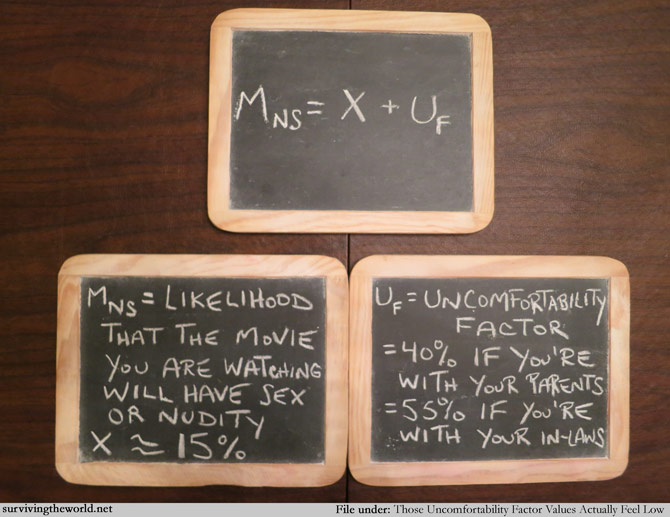 M_NS = X + U_F
M_NS = LIKELIHOOD
THAT THE MOVIE
YOU ARE WATCHING
WILL HAVE SEX
OR NUDITY
X ≈ 15%
U_F = UNCOMFORTABILITY
FACTOR
= 40% IF YOU'RE
WITH YOUR PARENTS
= 55% IF YOU'RE
WITH YOUR IN-LAWS
survivingtheworld.net File under: Those Uncomfortability Factor Values Actually Feel Low